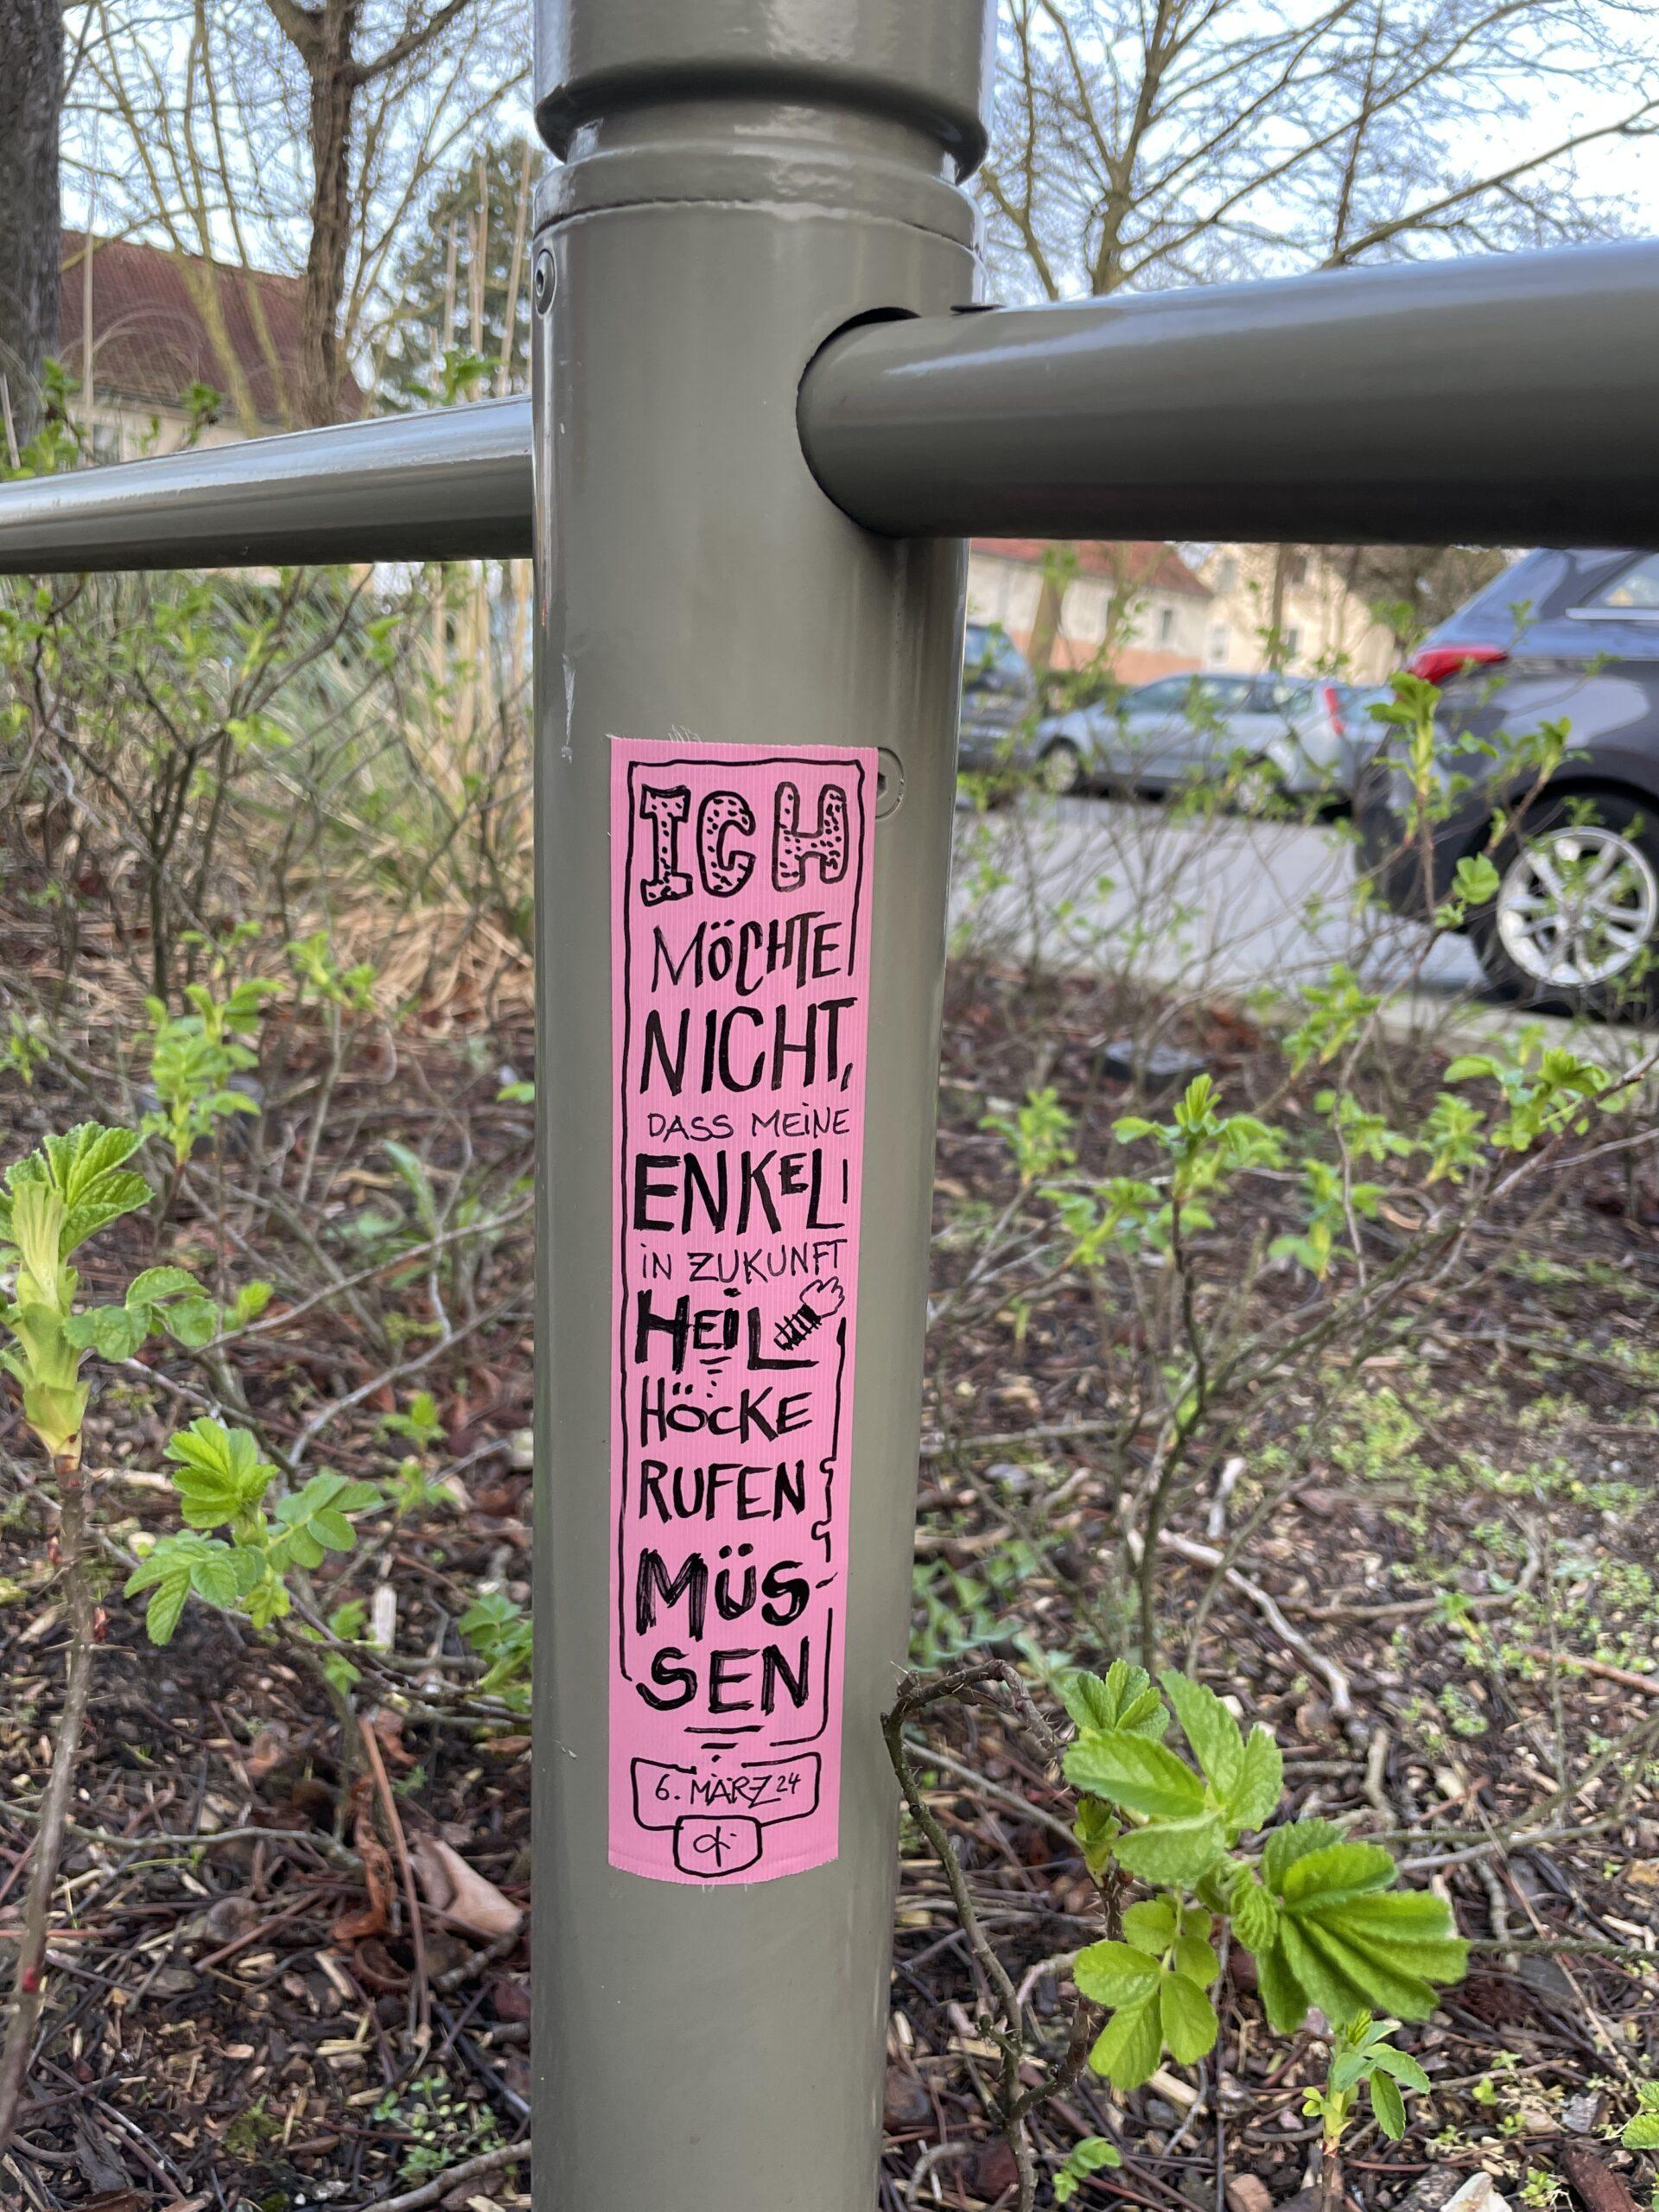 ICH
MÖCHTE
NICHT,
DASS MEINE
ENKEL
IN ZUKUNFT
HEIL
HÖCKE
RUFEN
MÜS-
SEN
6. MÄRZ 24